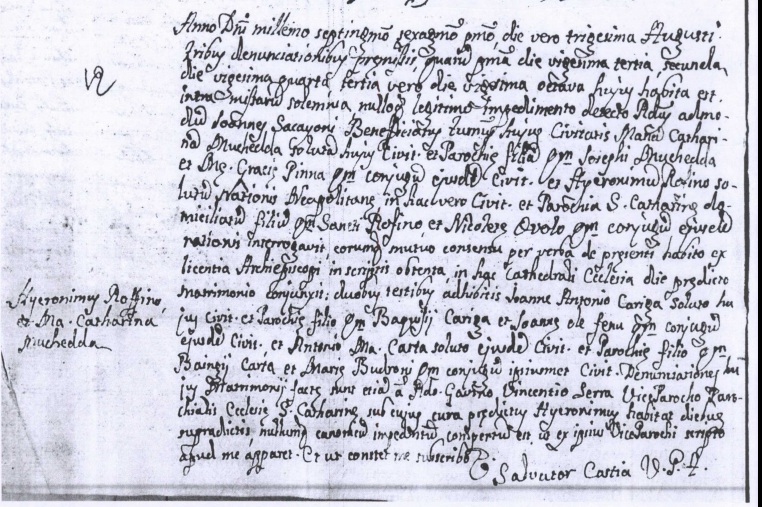 Anno Dnĩ millemo septingmõ sexagmõ pmõ, die vero trigesima Augusti.
tribus denunciationibus premissis, quarũ pmã die vigesima tertia, secunda
die vigesima quarta tertia vero die vigesima octava hujus habita est
intra missarũ solemnia nulloq legitimo impedimento detecto Rdus admo-
dũ Joannes Sacayoni Beneficiatus hujus Civitatis Mariã Cathari-
nã Muchedda solutã hujus Civit. et Parochie filiã qm Josephi Muchedda
et Me Gracie Pinna qm conjugũ ejusdẽ Civit. et Hyeronimũ Roffino so-
lutũ Nationis Neapolitane, in hac vero Civit. et Parochia S. Catharine do-
miciliatũ filiũ qm Sancti Roffino, et Nicolese Ovolo qm conjugũ ejusdẽ
nationis interrogavit, eorumq mutuo consensu per verba de presenti habito ex
licentia Archiepiscopi in scriptis obtenta, in hac Cathedrali Ecclesia die predicto
matrimonio conjunxit; duobus testibus adhibitis Joanne Antonio Cariga soluto hu
jus Civit. et Parochie filio qm Baquisij Cariga et Joanne de fenu qm conjugũ
ejusdẽ Civit. et Antonio Ma. Carta soluto ejusdẽ Civit. et Parochie filio qm
Baingij Carta et Marie Budroni qm conjugũ ipsiusmet Civit. Denunciationes hu
jus Matrimonij facte sunt etiã à Rdo Gavino Vincentio Serra Vice Parocho Paro-
chialis Ecclesie S. Catharine sub cujus cura predictus Hyeronimus habitat diebus
supradictis, nullumq canonicũ impedimtũ compertũ est, ut ex ipsius Vice Parochi scripto
apud me apparet. Et ut constet me subscribo
Salvator Castia V. P. A.
Hyeronimus Roffino,
et Ma. Catharina
Muchedda